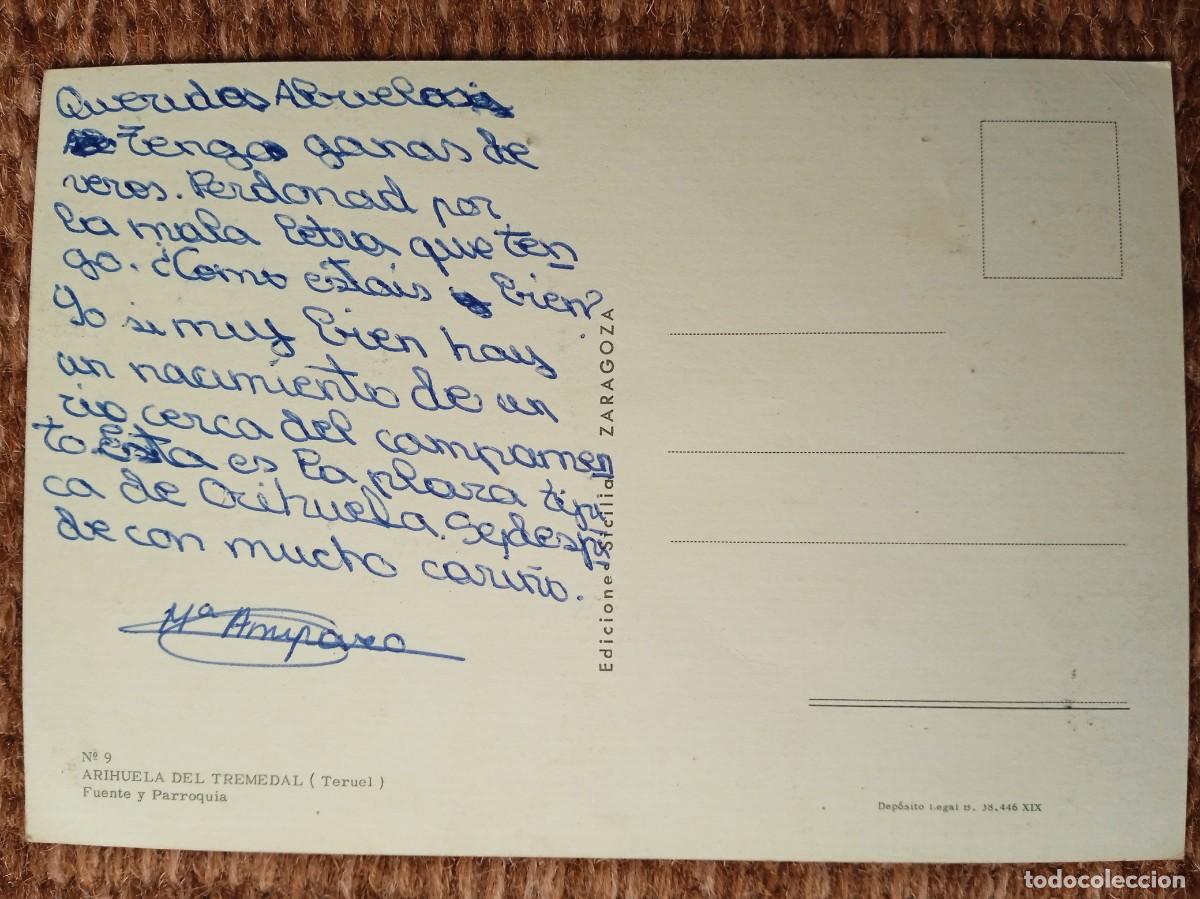 Queridos Abuelos
Tengo ganas de
veros. Perdonad por
la mala letra que ten
go. ¿Como estais bien?
Yo si muy bien hay
un nacimiento de un
rio cerca del campamen
to Esta es la plaza tipi
ca de Orihuela. Se despi
de con mucho cariño.
Mª Amparo
Nº 9
ARIHUELA DEL TREMEDAL ( Teruel )
Fuente y Parroquia
Ediciones Sicilia ZARAGOZA
Depósito Legal B. 38.446 XIX
todocoleccion